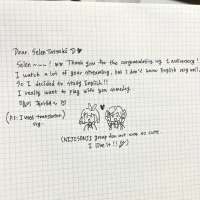 Dear. Selen Tatsuki D ♥
Selen ~~~ ! ww Thank you for the congratulating my 1 anniversary !
I watch a lot of your streaming, but I don't know English very well,
So I decided to study English!!
I really want to play with you someday.
(P.S: I used translator
(NIJISANJI group fan art was so cute.
I love it !!